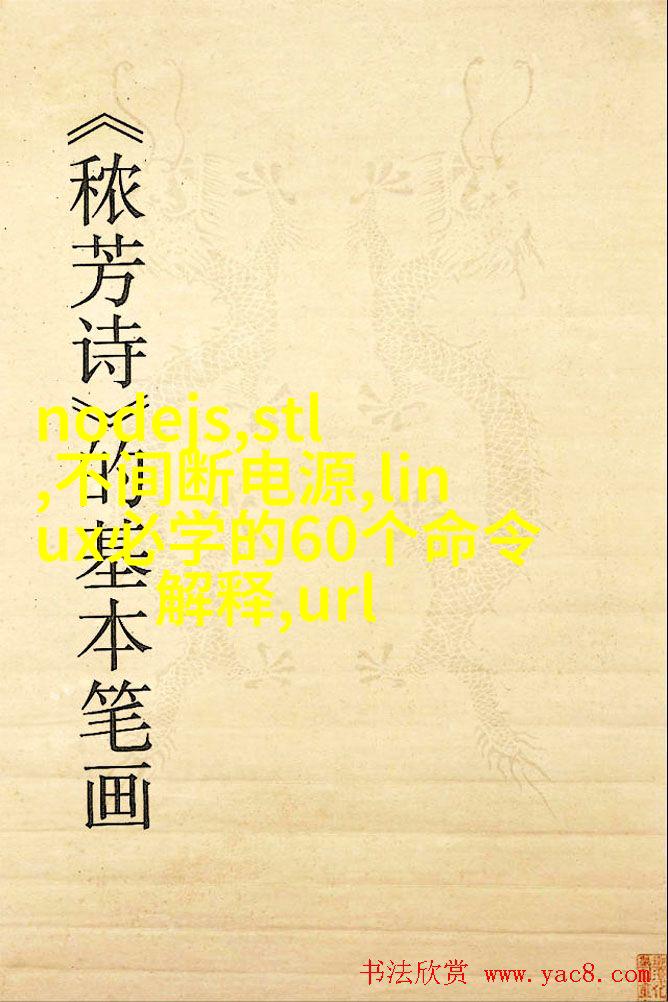 《秾芳诗》的基本笔画
nodejs,stl
,不间断电源,lin
ux必学的60个命令
解释,url
书法欣赏 www.yac8.com